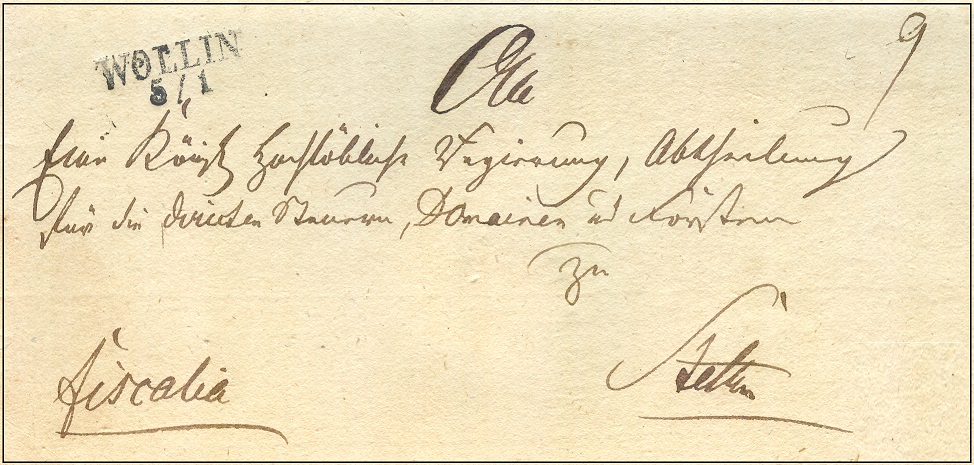 WOLLIN
5/1
9
An
Eine Königl Hochlöbliche Regierung, Abtheilung
für die directen Steuern, Domainen und Forsten
zu
Stettin
fiscalia